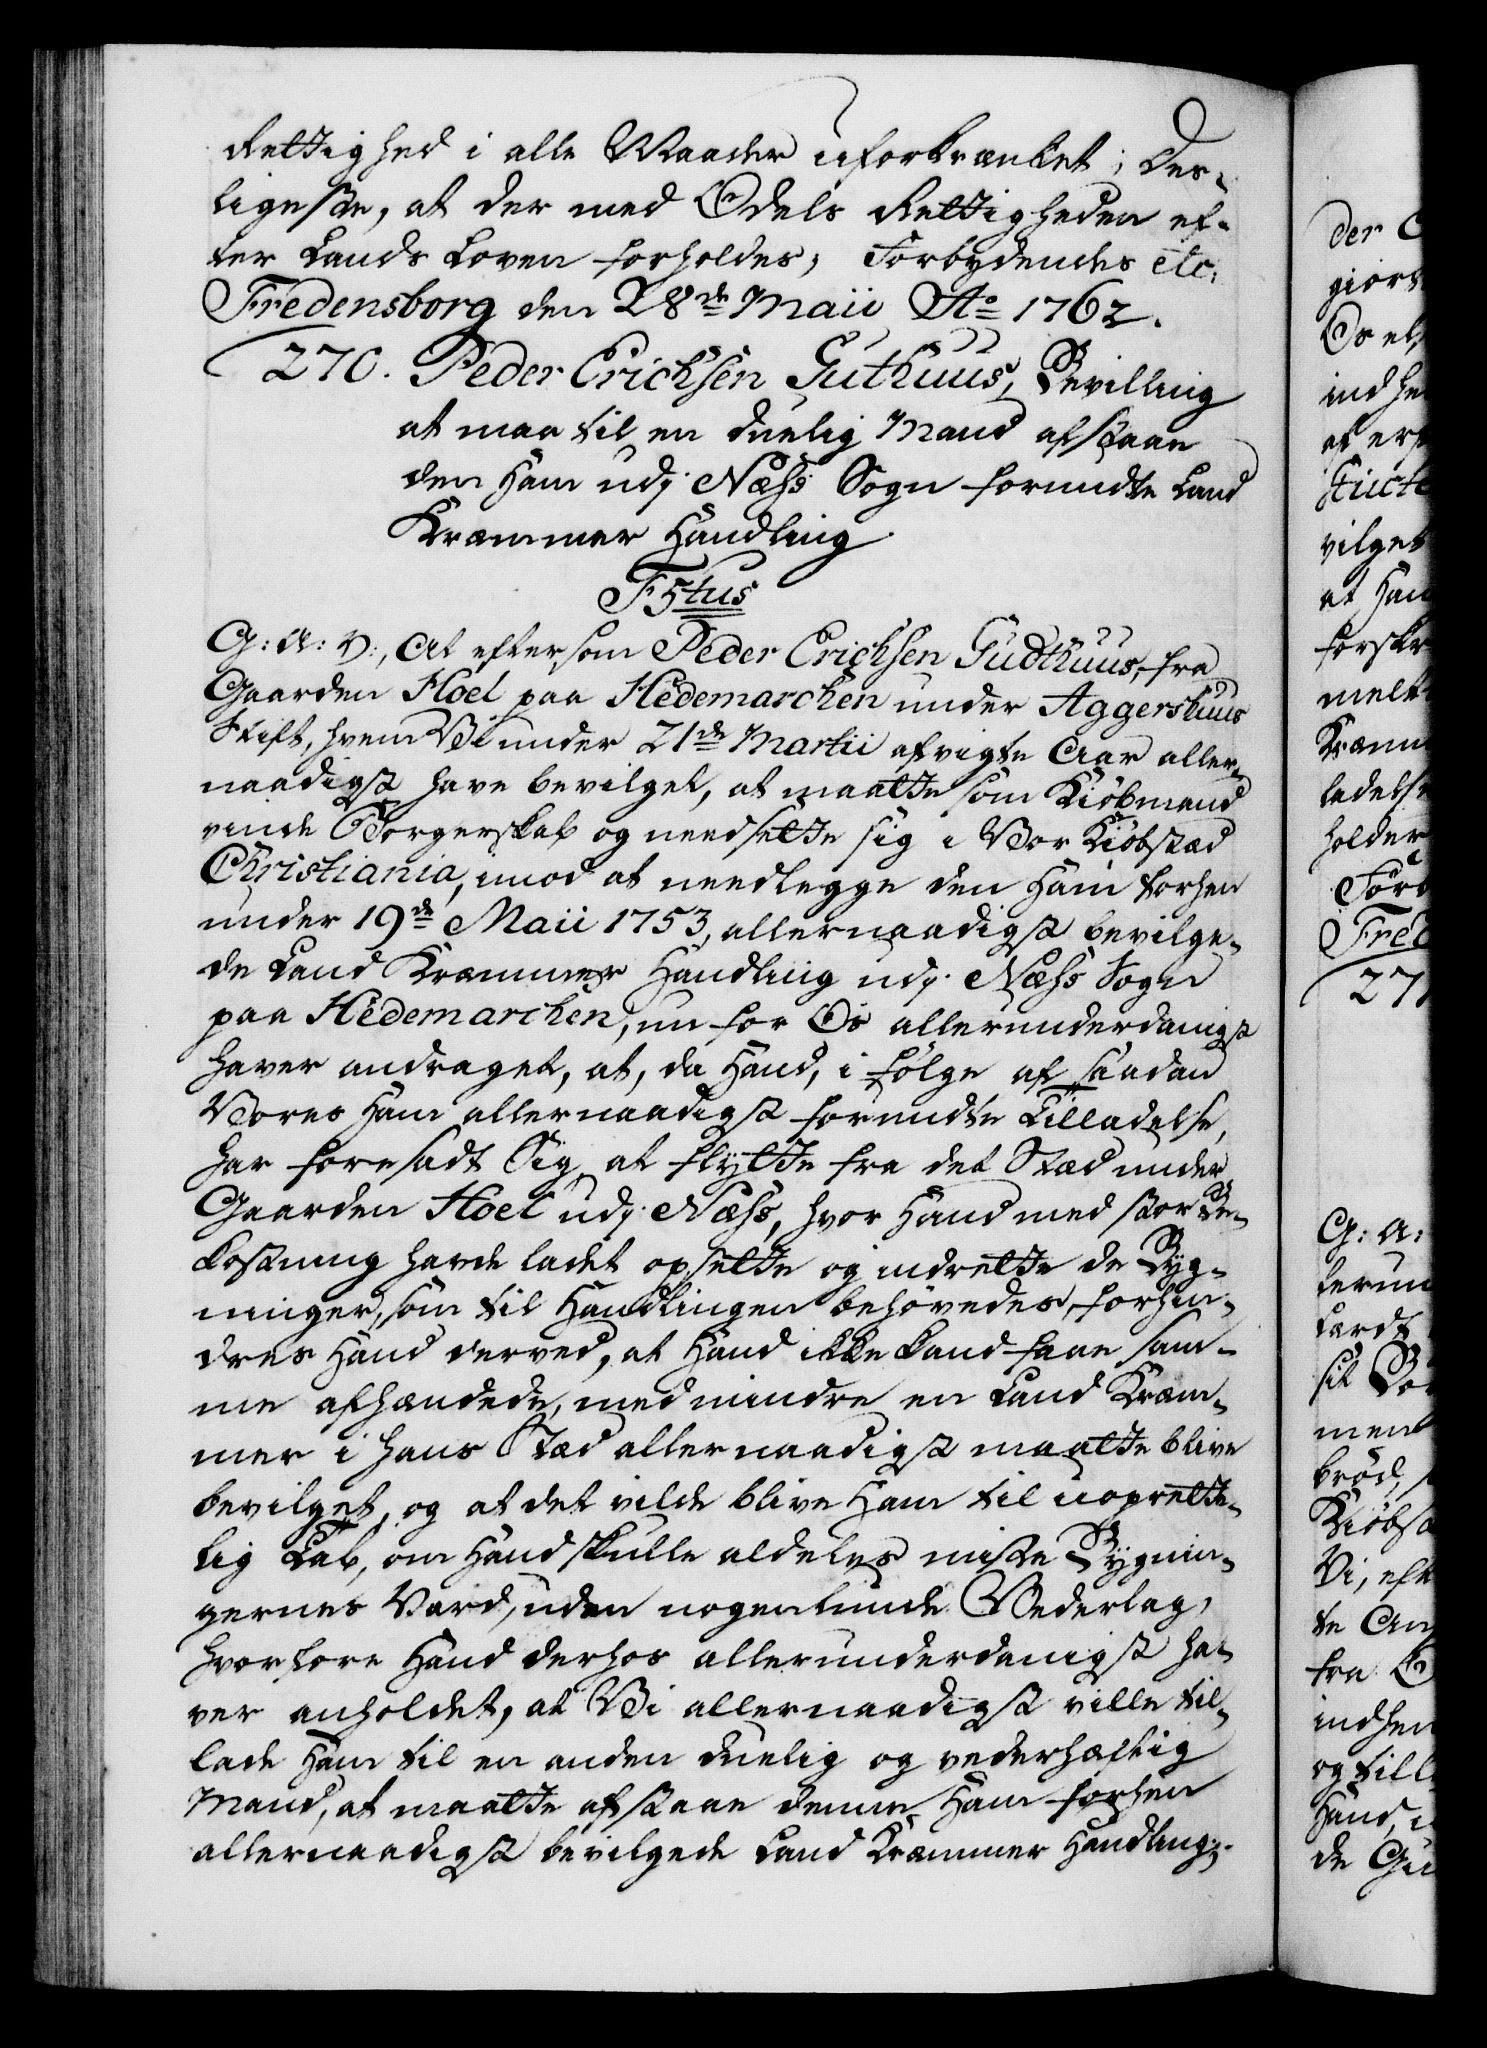 Rettighed i alle Maader uforkrænket; Des-
ligeste, at der med Odels Rettigheden ef-
ter Lands Loven forholdes; Forbydendes etc.
Fredensborg den 28de Maii Ao 1762.
270. Peder Erichsen Guthuus, Bevilling
at maa til en duelig Mand afstaae
den Ham udj Næss Sogn forundte Land
Kræmmer Handling.
F5tus
G: A: V:, At eftersom Peder Erichsen Gudthuus, fra
Gaarden Hoel paa Hedemarchen under Aggershuus
Stift, hvem Vi under 21de Martii afvigte Aar aller-
naadigst have bevilget, at maatte som Kiöbmand
vinde Borgerskab og needsette sig i Vor Kiöbstæd
Christiania, imod at needlegge den Ham forhen
under 19de Maii 1753, allernaadigst bevilge-
de Land Kræmmer Handling udj Næss Sogn
paa Hedemarchen, nu for Os allerunderdanigst
haver andraget, at, da Hand, i følge af saadan
Vores Ham allernaadigst forundte Tilladelse,
har foresadt Sig at flÿtte fra det Stæd under
Gaarden Hoel udj Næss, hvor Hand med stor Be-
kostning havde ladet opsette og indrette de Byg-
ninger, som til Handlingen behövedes, forhin-
dres Hand derved, at Hand ikke kand faae sam-
me afhændede, medmindre en Land Kræm-
mer i hans Stæd allernaadigst maatte blive
bevilget, og at det vilde blive Ham til uoprette-
lig Tab, om Hand skulle aldeles miste Bygnin-
gernes Værd, uden nogenlunde Vederlag,
hvorfore Hand derhos allerunderdanigst ha-
ver anholdet, at Vi allernaadigst ville til-
lade Ham til en anden duelig og vederhæftig
Mand, at maatte afstaae denne Ham forhen
allernaadigst bevilgede Land Kræmmer Handling;